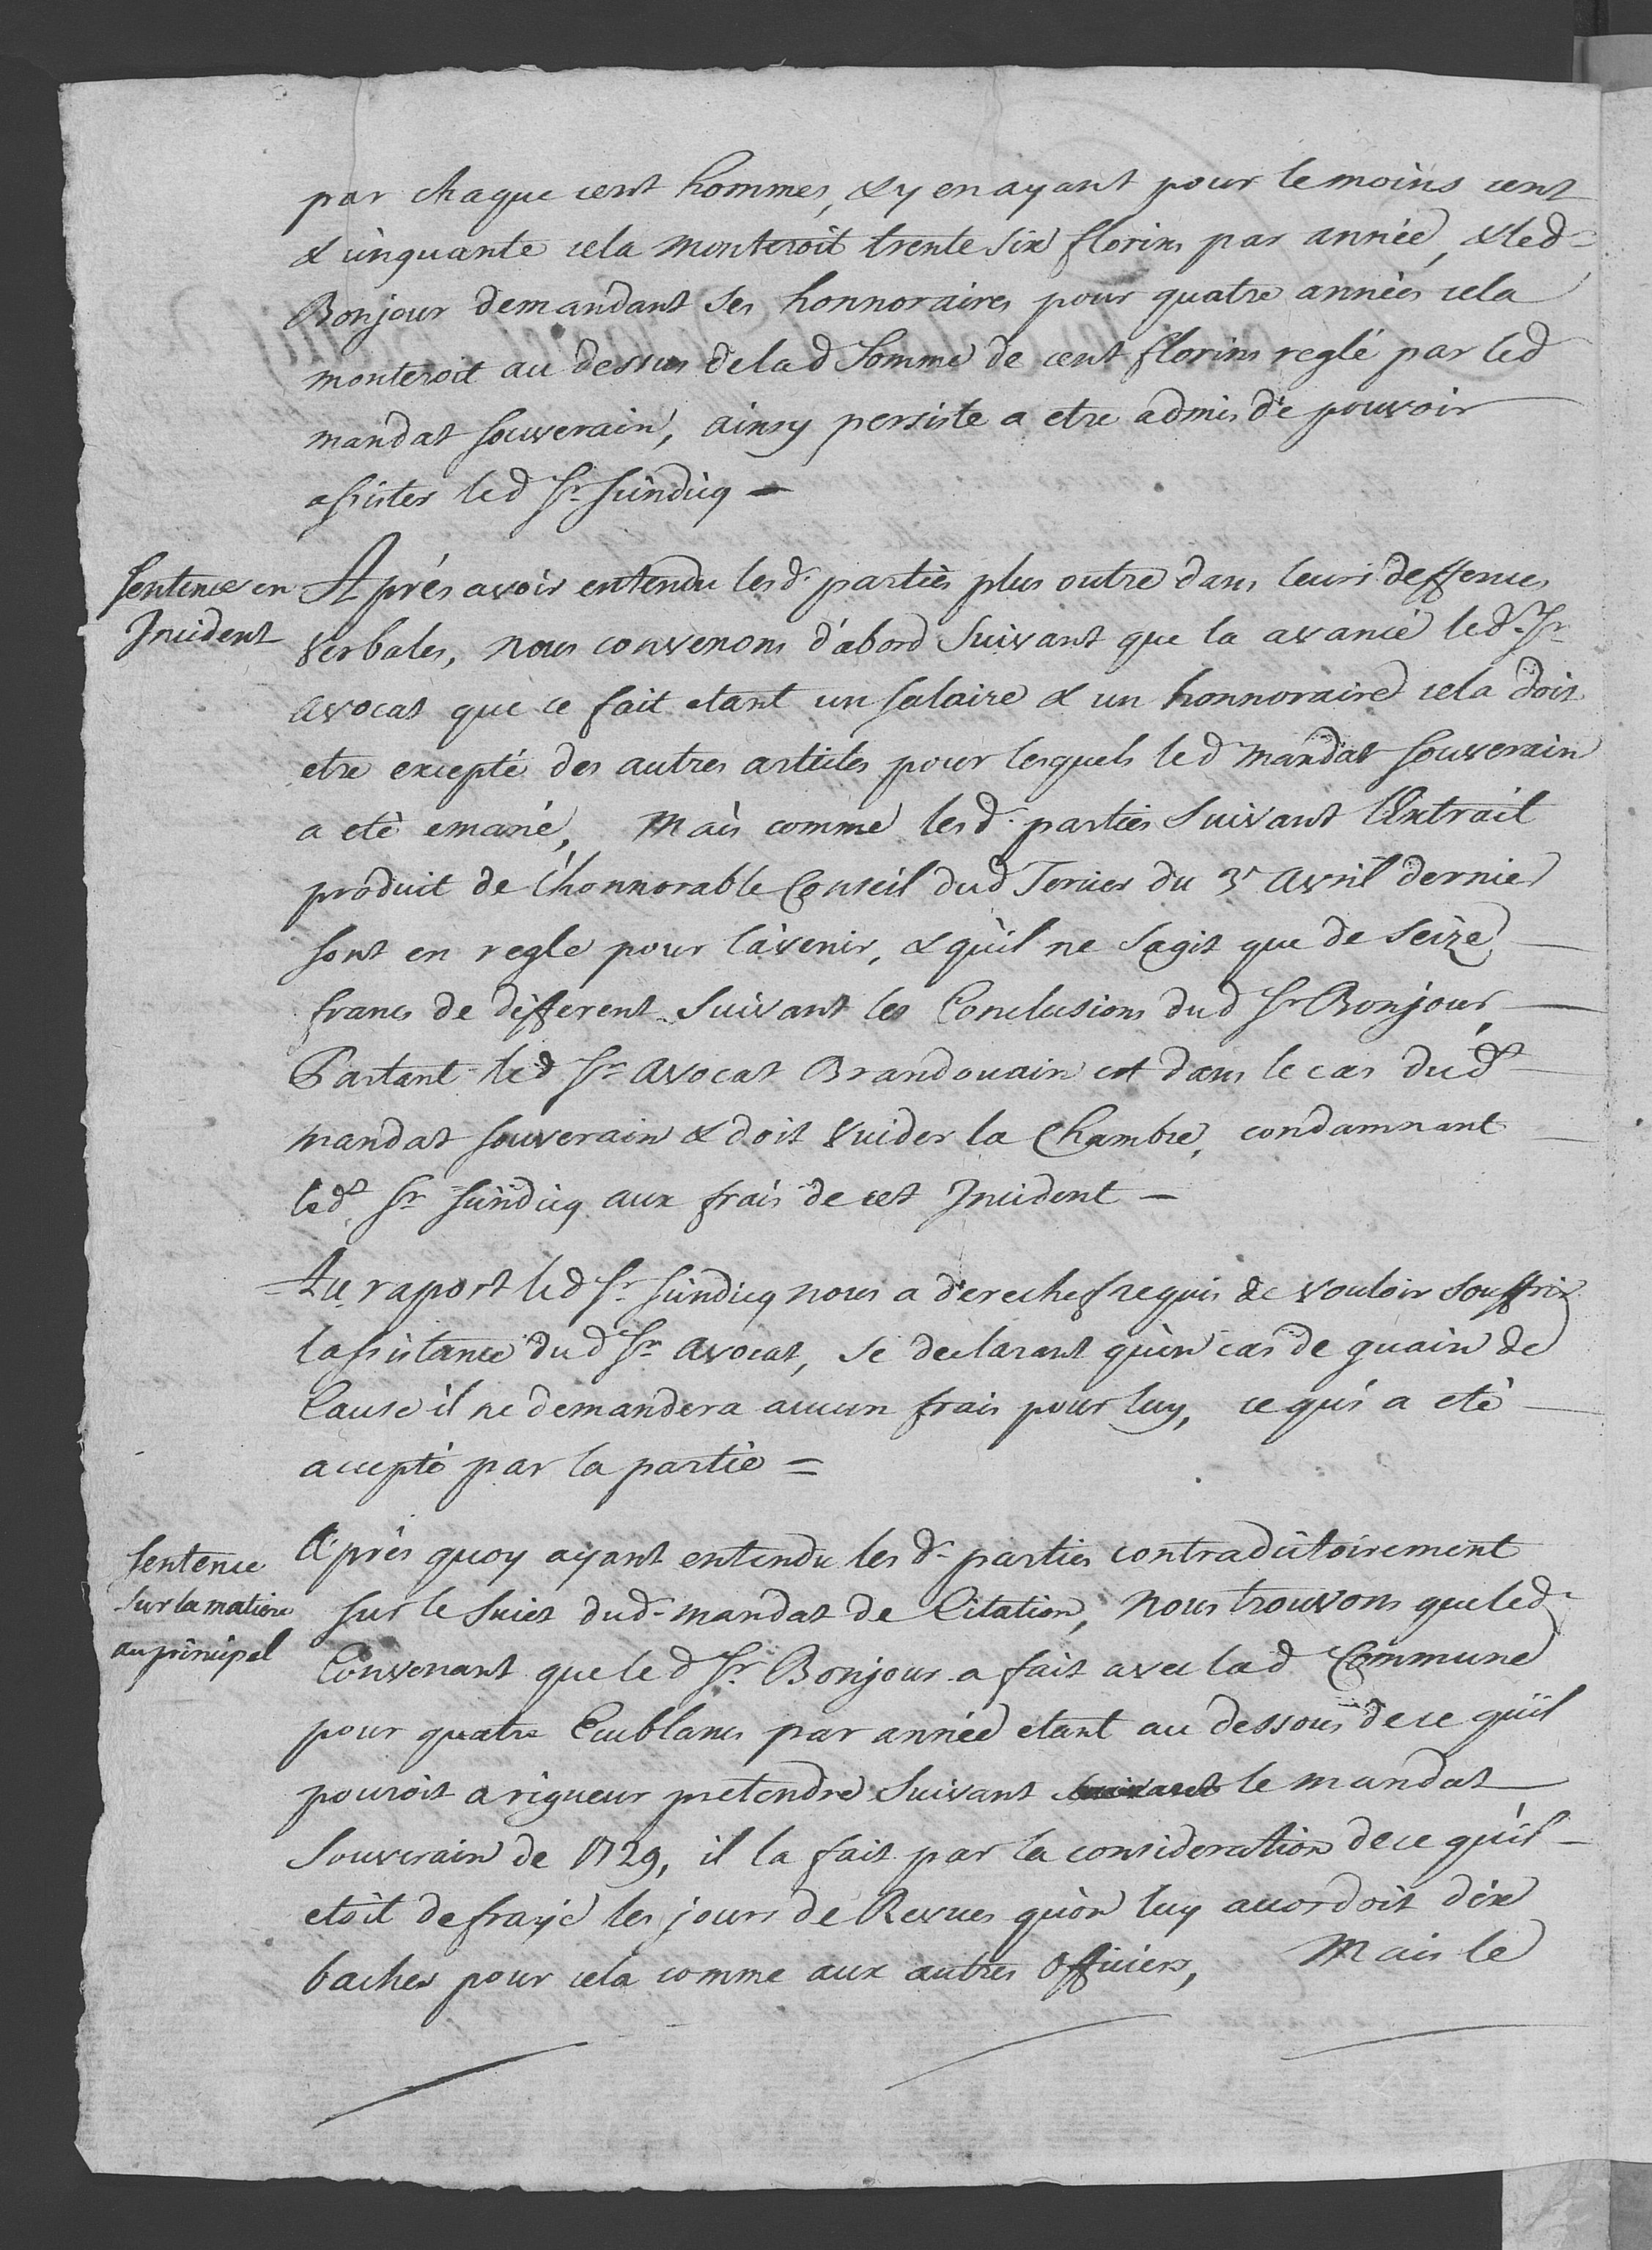 par chaque cent hommes, & y en ayant pour le moins cent
& cinquante cela monteroit trente six florins par année, & led
Bonjour demandant ses honnoraires pour quatre années cela
monteroit au dessus de lad somme de cent florins reglé par led
mandat souverain, ainsy persiste a etre admis de pouvoir
assister led Sr Sindicq
Sentence en
Incident
Aprés avoir entendu lesd. parties plus outre dans leurs deffences
verbales, nous convenons d'abord suivant que la avancé led. Sr
avocat que ce fait etant un salaire & un honnoraire cela doit
etre excepté des autres articles pour lesquels led mandat souverain
a eté emané, Mais comme lesd. parties suivant l'Extrait
produit de l'honnorable Conseil dud Tercier du 3e avril dernier
sont en regle pour l'avenir, & qu'il ne s'agit que de seize
francs de different suivant les Conclusions dud Sr Bonjour,
Partant led Sr avocat Brandouain est dans le cas dudt
mandat souverain & doit vuider la Chambre, condamnant
ledt Sr Sindicq aux frais de cet Incident
Au raport led Sr. Sindicq nous a derechef requis de vouloir souffrir
lassistance dud Sr avocat, se declarant qu'en cas de guain de
Cause il ne demandera aucun frais pour luy, ce qui a eté
accepté par la partie =
Sentence
sur la matiere
au principal
Aprés quoy ayant entendu les d. parties contradictoirement
sur le suiet dud. mandat de Citation, nous trouvons que led.
Convenant que led Sr. Bonjour a fait avec lad Commune
pour quatre Ecublancs par année etant au dessous de ce qu'il
pouroit a rigueur pretendre suivant suivant le mandat
Souverain de 1729, il la fait par la consideration de ce qu'il
etoit defrayé les jours de Revues qu'on luy accordoit dix
baches pour cela comme aux autres officiers, Mais le